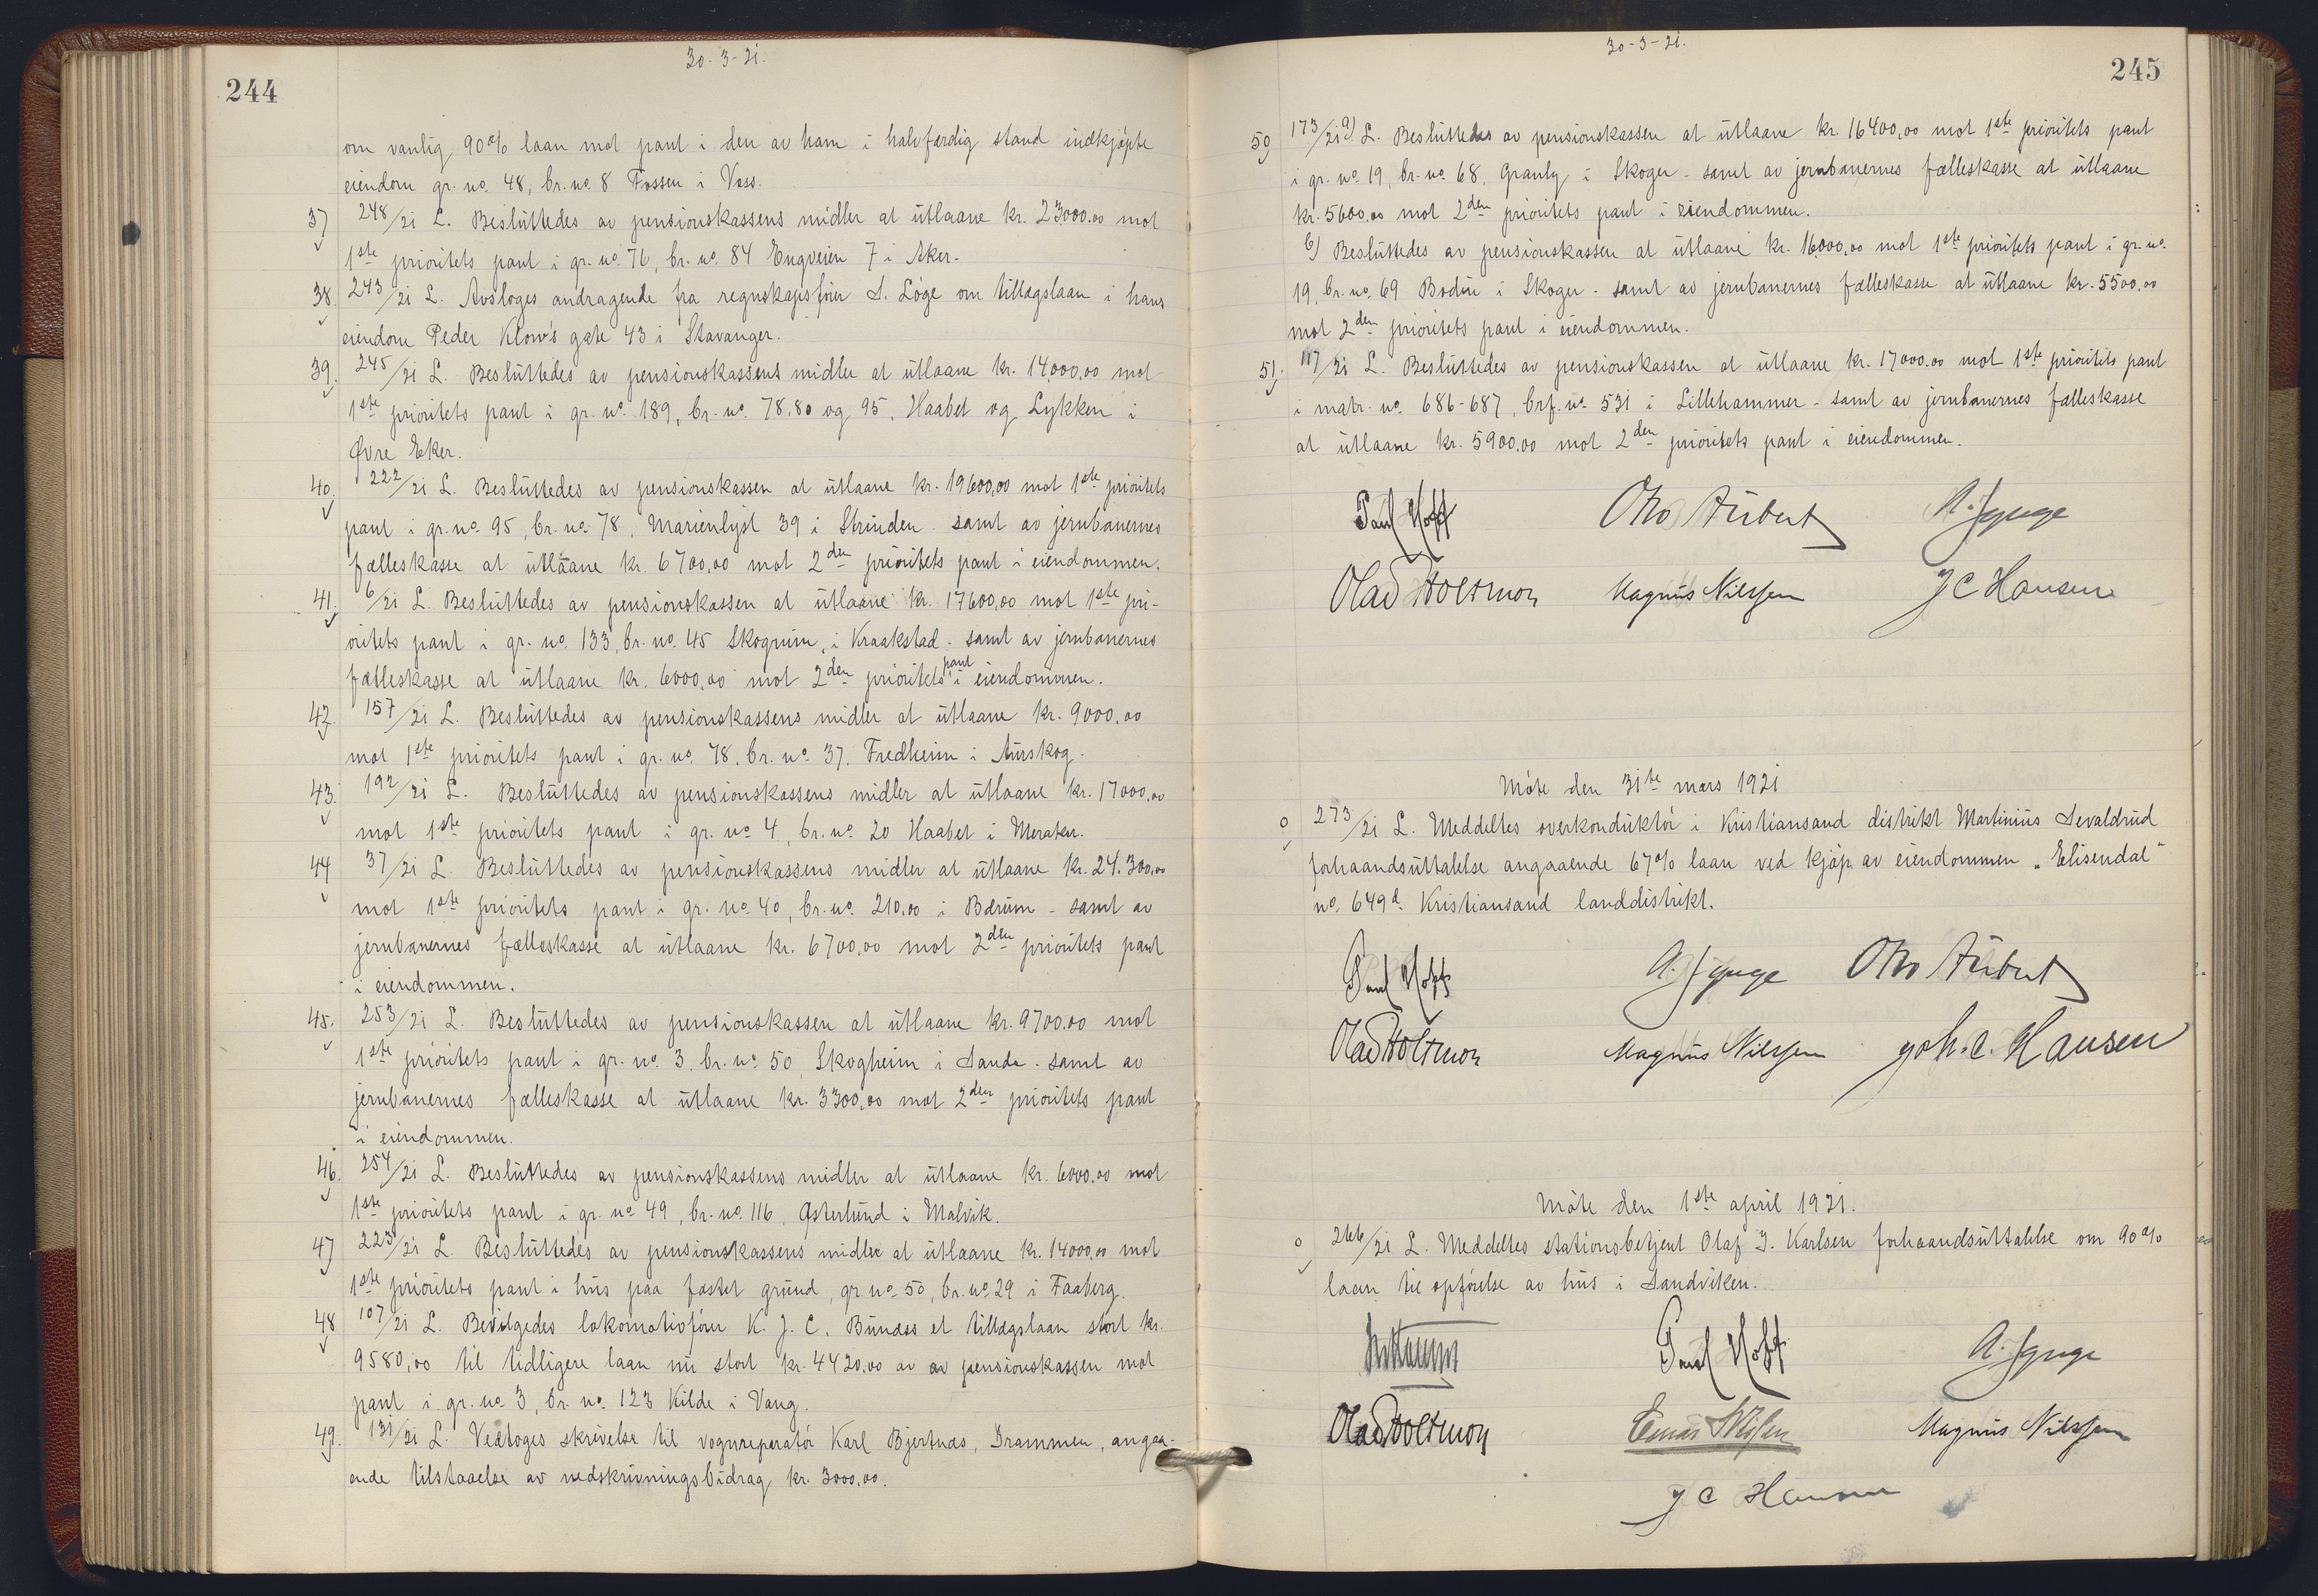 30-3-21.
244
om vanlig 90% laan mot pant i den av ham i halvfærdig stand indkjøpte
eiendom gr. no. 48, br. no. 8 Fossen i Voss.
37) 248/21 L. Besluttedes av pensionskassens midler at utlaane kr. 23000.00 mot
1ste prioritets pant i gr. no. 76, br. no. 84 Engveien 7 i Aker.
38. 243/21 L. Avsloges andragende fra regnskapsfører S. Løge om tillægslaan i hans
eiendom Peder Klow's gate 43 i Stavanger.
39. 245/21 L. Besluttedes av pensionskassens midler at utlaane kr. 14,000,00 mot
1ste prioritets pant i gr. no. 189, br. no. 78.80 og 95, Haabet og Lykken i
Øvre Eker.
40. 222/21 L. Besluttedes av pensionskassen at utlaane kr. 19600,00 mot 1ste prioritets
pant i gr. no. 95, br. no. 78, Marienlyst 39 i Strinden - samt av jernbanernes
fælleskasse at utlaane kr. 6700,00 mot 2den prioritets pant i eiendommen.
41. 6/21 L. Besluttedes av pensionskassen at utlaane kr. 17600,00 mot 1ste pri-
oritets pant i gr. no. 133, br. no. 45 Skogrum, i Kraakstad - samt av jernbanernes
fælleskasse at utlaane kr. 6000,00 mot 2den prioritets pant i eiendommen.
42. 157/21 L. Besluttedes av pensionskassens midler at utlaane kr. 9000,00
mot 1ste prioritets pant i gr. no. 78, br. no. 37, Fredheim i Aurskog.
43. 192/21 L. Besluttedes av pensionskassens midler at utlaane kr. 17000,00
mot 1ste prioritets pant i gr. no. 4, br. no. 20 Haabet i Meraker.
44 37/21 L. Besluttedes av pensionskassens midler at utlaane kr. 24.300,00
mot 1ste prioritets pant i gr. no. 40, br. no. 210,00 i Bærum - samt av
jernbanernes fælleskasse at utlaane kr. 6700,00 mot 2den prioritets pant
i eiendommen.
45. 253/21 L. Besluttedes av pensionskassen at utlaane kr. 9700.00 mot
1ste prioritets pant i gr. no. 3, br. no. 50, Skogheim i Sande - samt av
jernbanernes fælleskasse at utlaane kr. 3300,00 mot 2den prioritets pant
i eiendommen.
46. 254/21 L. Besluttedes av pensionskassens midler at utlaane kr. 6000.00 mot
1ste prioritets pant i gr. no. 49, br. no. 116, Østerlund i Malvik.
47 223/21 L. Besluttedes av pensionskassens midler at utlaane kr. 14000,00 mot
1ste prioritets pant i hus paa fæstet grund, gr. no. 50, br. no. 29 i Faaberg.
48 107/21 L. Bevilgedes lokomotivfører K. J. C. Bunæss et tillægslaan stort kr.
9580,00 til tidligere laan nu stort kr. 4420.00 av av pensionskassen mot
pant i gr. no. 3, br. no. 123 Kilde i Vang.
49. 131/21 L. Vedtoges skrivelse til vognreperatør Karl Bjertnæs, Drammen, angaa-
ende tilstaaelse av nedskrivningsbidrag kr. 3000.00.
30-3-21.
245
50 173/21 a) L. Besluttedes av pensionskassen at utlaane kr. 16400,00 mot 1ste prioritets pant
i gr. no. 19, br. no. 68, Granly i Skoger - samt av jernbanernes fælleskasse at utlaane
kr. 5600.00 mot 2den prioritets pant i eiendommen.
b) Besluttedes av pensionskassen at utlaane kr. 16,000,00 mot 1ste prioritets pant i gr. no.
19, br. no. 69 Bodin i Skoger - samt av jernbanernes fælleskasse at utlaane kr. 5500,00
mot 2den prioritets pant i eiendommen.
51. 117/21 L. Besluttedes av pensionskassen at utlaane kr. 17000.00 mot 1ste prioritets pant
i matr. no. 686-687, brf. no. 531 i Lillehammer - samt av jernbanernes fælleskasse
at utlaane kr. 5900.00 mot 2den prioritets pant i eiendommen.
Paul Hoff Otto Aubert
Olav Holtmon Magnus Nilssen J C Hansen
Møte den 31te mars 1921
0 273/21 L. Meddeltes overkonduktør i Kristiansand distrikt Martinius Sevaldrud
forhaandsuttalelse angaaende 67% laan ved kjøp av eiendommen "Elisendal"
no. 649d Kristiansand landdistrikt.
Paul Hoff Otto Aubert
Olav Holtmon Magnus Nilssen Joh. C. Hansen
Møte den 1ste april 1921.
0 266/21 L. Meddeltes stationsbetjent Olaf J. Karlsen forhaandsuttalelse om 90%
laan til opførelse av hus i Sandviken.
Paul Hoff
Olav Holtmon Magnus Nilssen
J C Hansen